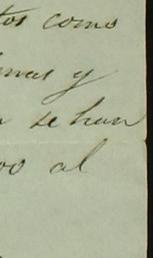 tos como
y
se han
oo al